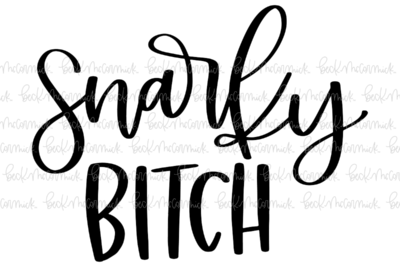 Snarky
BITCH